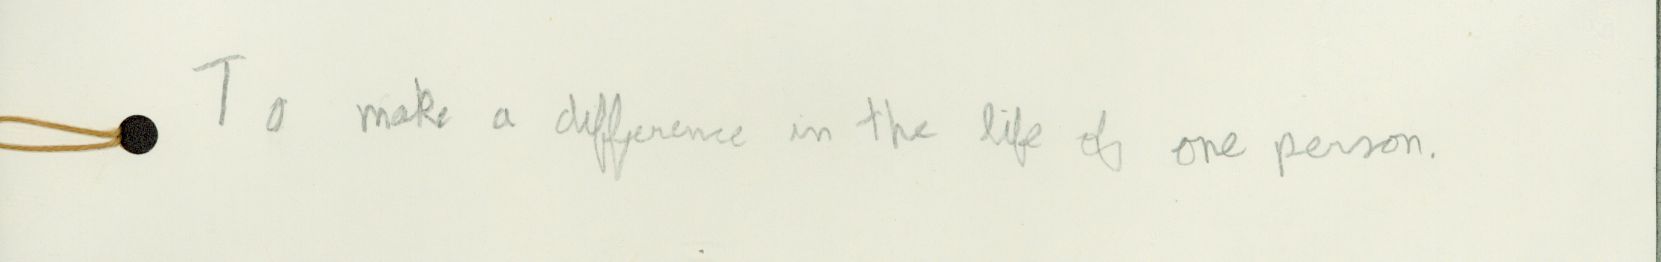 To make a difference in the life of one person.